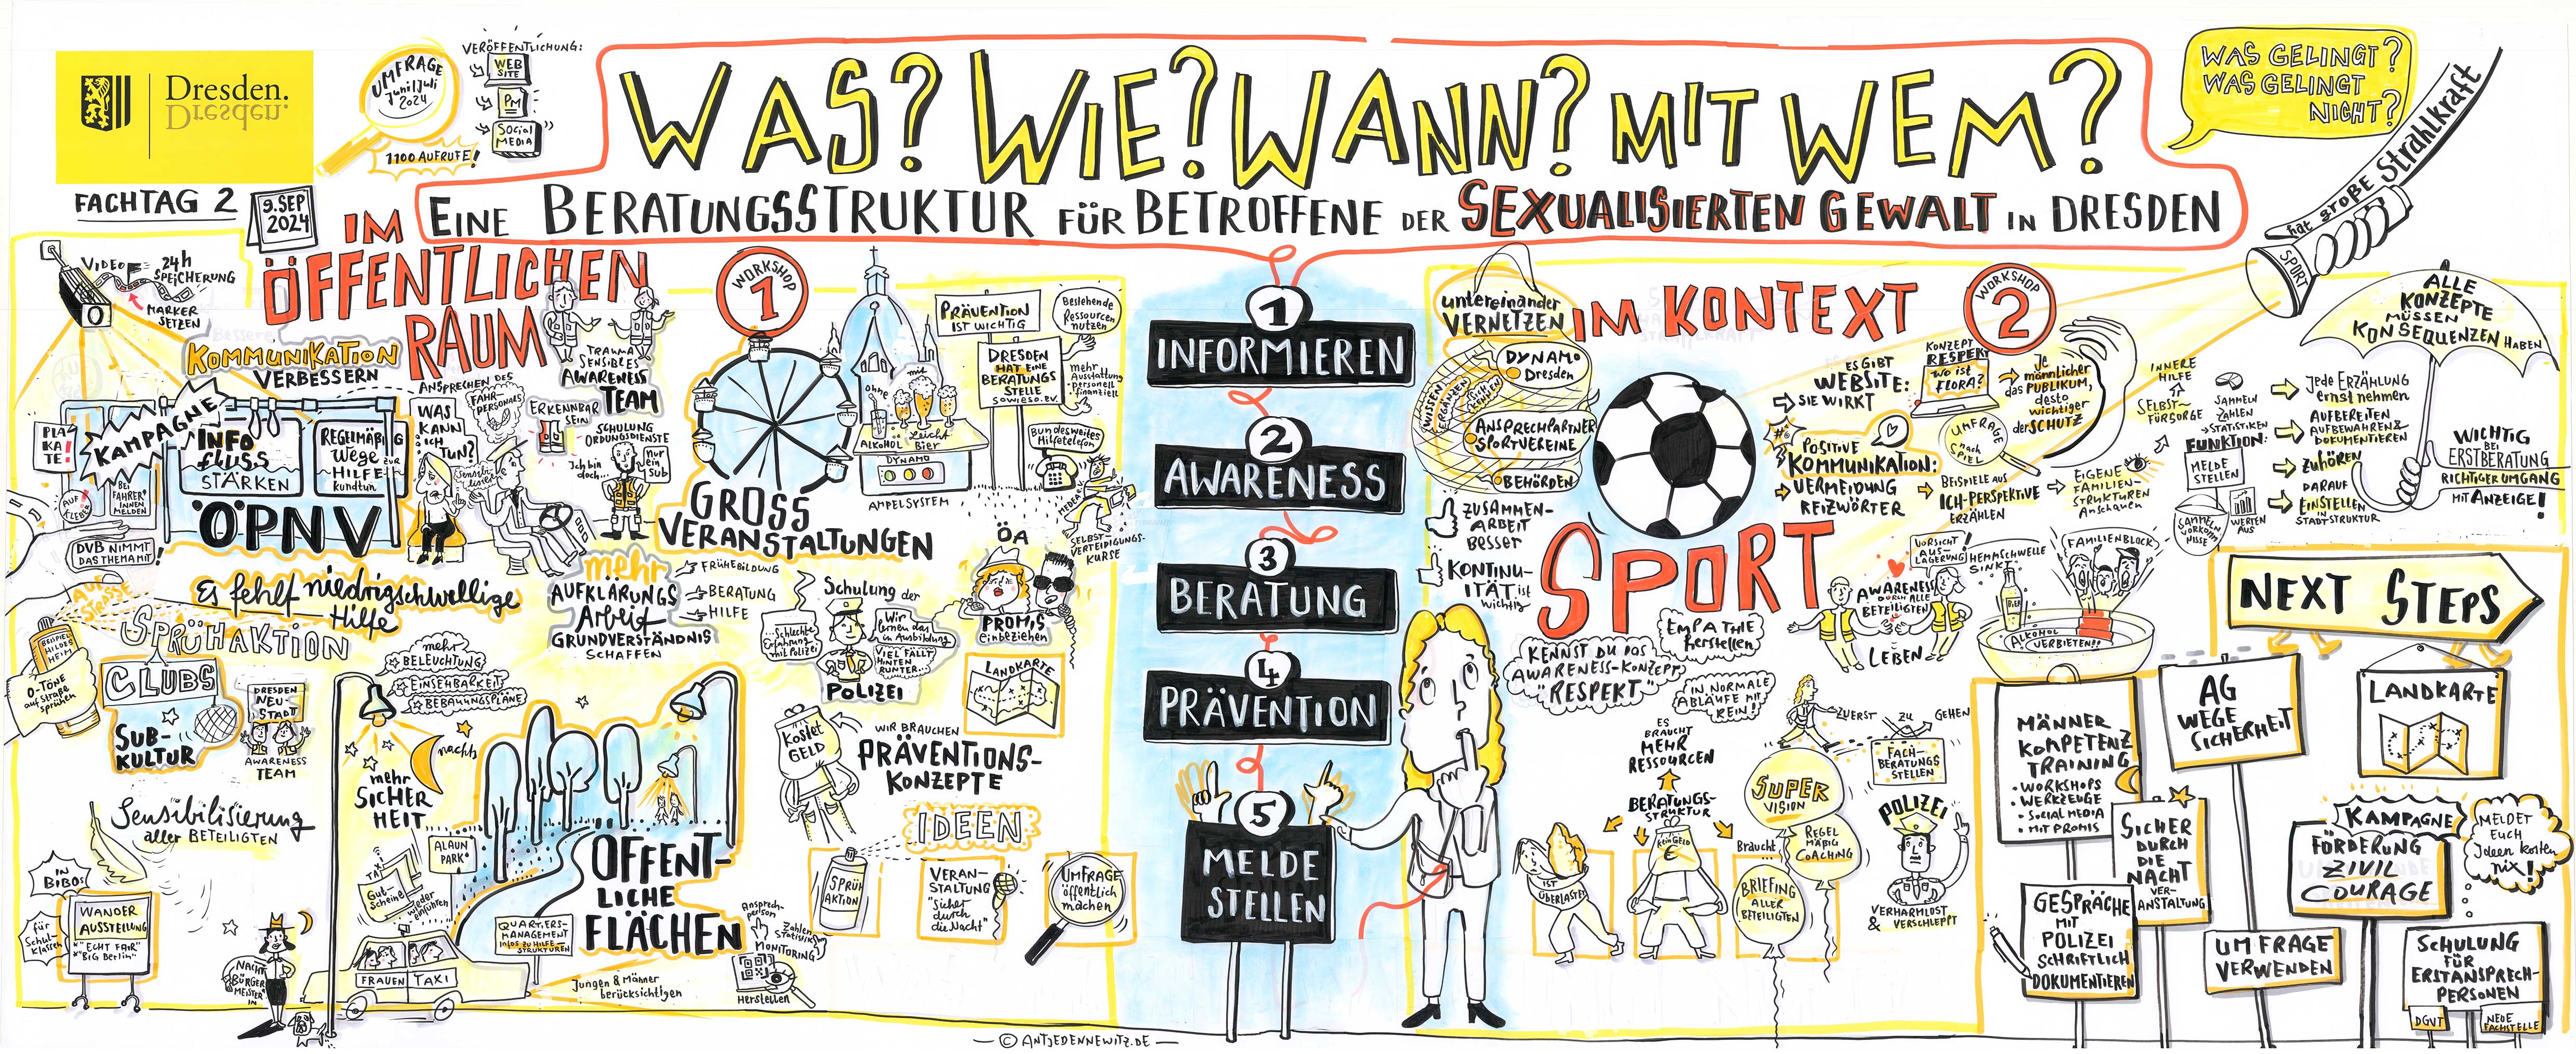 Dresden.
Dresden.
FACHTAG 2
9. SEP
2024
UMFRAGE
Juni/Juli
2024
1100 AUFRUFE!
VERÖFFENTLICHUNG:
WEB
SITE
PM
SOCIAL
MEDIA
WAS? WIE? WANN? MIT WEM?
EINE BERATUNGSSTRUKTUR FÜR BETROFFENE DER SEXUALISIERTEN GEWALT IN DRESDEN
WAS GELINGT?
WAS GELINGT
NICHT?
SPORT
hat große Strahlkraft
IM
ÖFFENTLICHEN
RAUM
WORKSHOP
1
VIDEO
24h
SPEICHERUNG
MARKER
SETZEN
KOMMUNIKATION
VERBESSERN
PLA
KA
TE!
KAMPAGNE
INFO
fluss
STÄRKEN
REGELMÄßIG
Wege zur
HILFE
kundtun
AUF
KLEBER
BEI
FAHRER*
INNEN
MELDEN
ÖPNV
DVB NIMMT
DAS THEMA MIT!
ANSPRECHEN DES
FAHR-
PERSONALS
WAS
KANN
ICH
TUN?
TRAUMA
SENSIBLES
AWARENESS
TEAM
ERKENNBAR
SEIN
SCHULUNG
ORDUNGSDIENSTE
Ich bin
doch...
Nur
ein
Sub
Es fehlt niedrigschwellige
Hilfe
AUF
STRASSE
SPRÜHAKTION
BEISPIEL
HILDES
HEIM
O-TÖNE
auf Straße
sprühen
CLUBS
SUB-
KULTUR
DRESDEN
NEU-
STADT
AWARENESS
TEAM
Sensibilisierung
aller BETEILIGTEN
IN
BIBOS
für
Schul-
klassen
WANDER
AUSSTELLUNG
*"ECHT FAIR"
*"BIG Berlin"
NACHT
BÜRGER
MEISTER
IN
mehr
BELEUCHTUNG
EINSEHBARKEIT
BEBAUUNGSPLÄNE
nachts
mehr
SICHER
HEIT
TAXI
Gut-
scheine
wieder
einführen
ALAUN
PARK
FRAUEN TAXI
QUARTIERS
MANAGEMENT
Infos zu HILFE-
STRUKTUREN
ÖFFENT-
LICHE
FLÄCHEN
Jungen & Männer
berücksichtigen
Ansprech-
person
Zahlen
Statistik
MONITORING
Herstellen
GROSS
VERANSTALTUNGEN
ohne
mit
ALKOHOL
Leicht
Bier
DYNAMO
AMPELSYSTEM
PRÄVENTION
IST WICHTIG
Bestehende
Ressourcen
nutzen
DRESDEN
HAT EINE
BERATUNGS
STELLE
SOWIESO. EV.
mehr
Ausstattung
• personell
• finanziell
Bundesweites
Hilfetelefon
SELBST-
VERTEIDIGUNGS-
KURSE
mehr
AUFKLÄRUNGS
Arbeit
GRUNDVERSTÄNDNIS
SCHAFFEN
FRÜHE BILDUNG
BERATUNG
HILFE
Schulung der
POLIZEI
...Schlechte
Erfahrung
mit Polizei
Wir
lernen das
in Ausbildung
VIEL FÄLLT
HINTEN
RUNTER...
ÖA
PROMIS
einbeziehen
LANDKARTE
Kostet
GELD
WIR BRAUCHEN
PRÄVENTIONS-
KONZEPTE
IDEEN
SPRÜH
AKTION
VERAN-
STALTUNG
"sicher
durch
die Nacht"
UMFRAGE
öffentlich
machen
1
INFORMIEREN
2
AWARENESS
3
BERATUNG
4
PRÄVENTION
5
MELDE
STELLEN
© ANTJEDENNEWITZ.DE
IM KONTEXT
SPORT
WORKSHOP
2
untereinander
VERNETZEN
WISSEN
DYNAMO
Dresden
ANSPRECHPARTNER
SPORTVEREINE
BEHÖRDEN
ZUSAMMEN-
ARBEIT
Besser
KONTINU-
ITÄT ist
wichtig
ES GIBT
WEBSITE:
SIE WIRKT
KONZEPT
RESPEKT
WO IST
FLORA?
Je
männlicher
das PUBLIKUM,
desto
wichtiger
der SCHUTZ
UMFRAGE
nach
SPIEL
POSITIVE
KOMMUNIKATION:
VERMEIDUNG
REIZWÖRTER
BEISPIELE AUS
ICH-PERSPEKTIVE
ERZÄHLEN
EIGENE
FAMILIEN-
STRUKTUREN
Anschauen
SELBST-
FÜRSORGE
INNERE
HILFE
SAMMELN
ZAHLEN
STATISTIKEN
FUNKTION:
MELDE
STELLEN
SAMMELN
VORKOMM
NISSE
WERTEN
AUS
Jede ERZÄHLUNG
ernst nehmen
AUFBEREITEN
AUFBEWAHREN &
DOKUMENTIEREN
ZUHÖREN
DARAUF
EINSTELLEN
IN
STADTSTRUKTUR
ALLE
KONZEPTE
MÜSSEN
KONSEQUENZEN HABEN
WICHTIG
BEI
ERSTBERATUNG
RICHTIGER UMGANG
MIT ANZEIGE!
KENNST DU DAS
AWARENESS-KONZEPT
"RESPEKT"
EMPATHIE
herstellen
IN NORMALE
ABLÄUFE MIT
REIN!
VORSICHT!
AUS-
LAGERUNG
AWARENESS
DURCH ALLE
BETEILIGTEN
LEBEN
HEMMSCHWELLE
SINKT
BIER
FAMILIENBLOCK
ALKOHOL
VERBIETEN!!
ES
BRAUCHT
MEHR
RESSOURCEN
BERATUNGS-
STRUKTUR
IST
ÜBERLASTET
KEIN GELD
€
Braucht...
BRIEFING
ALLER
BETEILIGTEN
SUPER
VISION
REGEL
MÄßIG
COACHING
ZUERST
ZU
GEHEN
FACH-
BERATUNGS
STELLEN
POLIZEI
VERHARMLOST
&
VERSCHLEPPT
NEXT STEPS
MÄNNER
KOMPETENZ
TRAINING
• WORKSHOPS
• WERKZEUGE
• SOCIAL MEDIA
• MIT PROMIS
AG
WEGE
SICHERHEIT
LANDKARTE
SICHER
DURCH
DIE
NACHT
VER-
ANSTALTUNG
GESPRÄCHE
MIT
POLIZEI
SCHRIFTLICH
DOKUMENTIEREN
KAMPAGNE
FÖRDERUNG
ZIVIL
COURAGE
MELDET
EUCH
Ideen kosten
nix!
UMFRAGE
VERWENDEN
SCHULUNG
FÜR
ERSTANSPRECH-
PERSONEN
DGUV
NEUE
FACHSTELLE